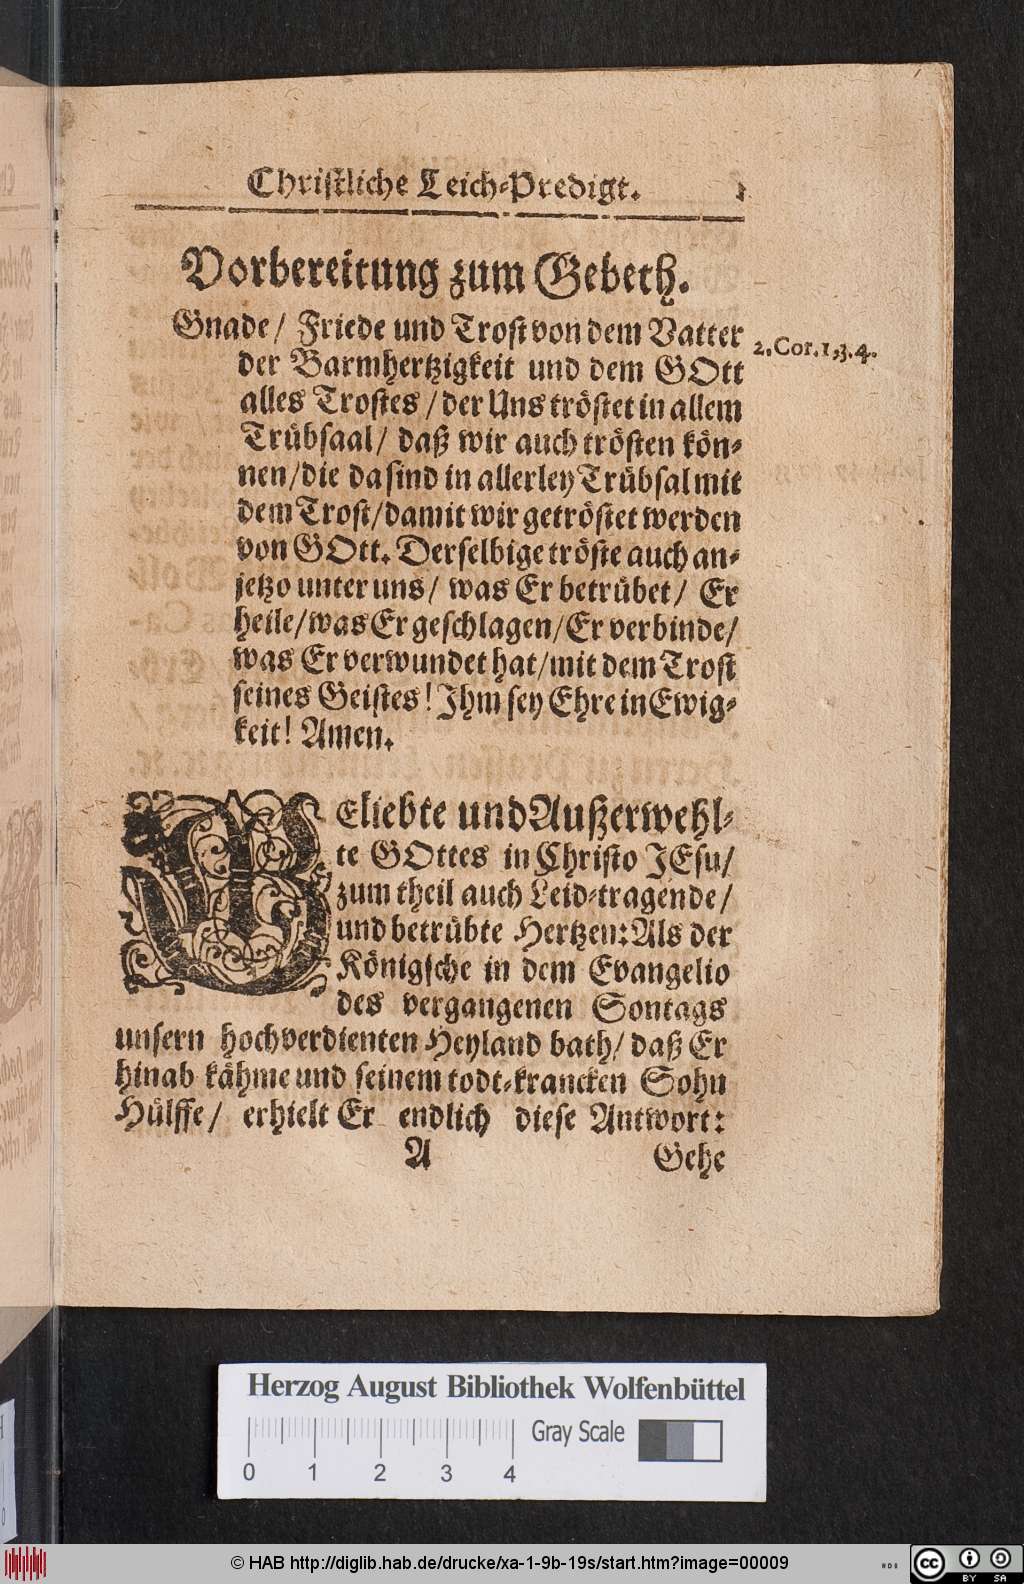 Christliche Leich-Predigt.
Vorbereitung zum Gebeth.
Gnade/ Friede und Trost von dem Vatter
der Barmhertzigkeit und dem GOtt
alles Trostes/ der Uns tröstet in allem
Trübsaal/ daß wir auch trösten kön-
nen/ die da sind in allerley Trübsal mit
dem Trost/ damit wir getröstet werden
von GOtt. Derselbige tröste auch an-
jetzo unter uns/ was Er betrübet/ Er
heile/ was Er geschlagen/ Er verbinde/
was Er verwundet hat/ mit dem Trost
seines Geistes! Ihm sey Ehre in Ewig-
keit! Amen.
2. Cor. 1, 3. 4.
GEliebte und Außerwehl-
te GOttes in Christo JEsu/
zum theil auch Leid-tragende/
und betrübte Hertzen: Als der
Königsche in dem Evangelio
des vergangenen Sontags
unsern hochverdienten Heyland bath/ daß Er
hinab kähme und seinem todt-krancken Sohn
Hülffe/ erhielt Er endlich diese Antwort:
A Gehe
Herzog August Bibliothek Wolfenbüttel
Gray Scale
0 1 2 3 4
© HAB http://diglib.hab.de/drucke/xa-1-9b-19s/start.htm?image=00009
cc BY SA